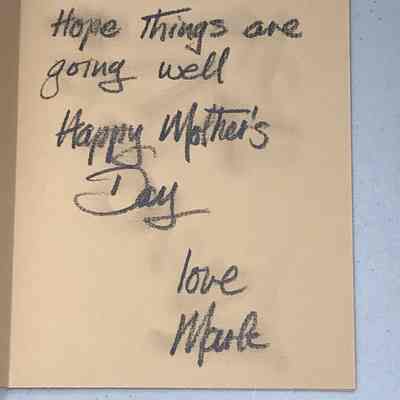 Hope Things are
going well
Happy Mother's
Day
love
Mark